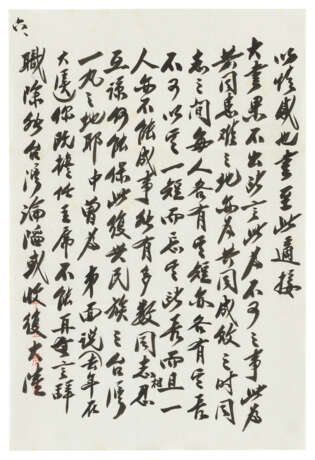 六
也書至此適接
大書果不出所言此為不可之事此為
共同患難之地亦為共同成敗之時同
志之間每人各有其短亦各有其長
不可以其一短而忘其所長而且一
人亦不能成事非有多數同志相忍
互諒何能保此復興民族之台灣
一丸之地耶中曾為面說去年在
大溪你既擔任主席不能再言辭
職除非台灣淪陷或收復大陸